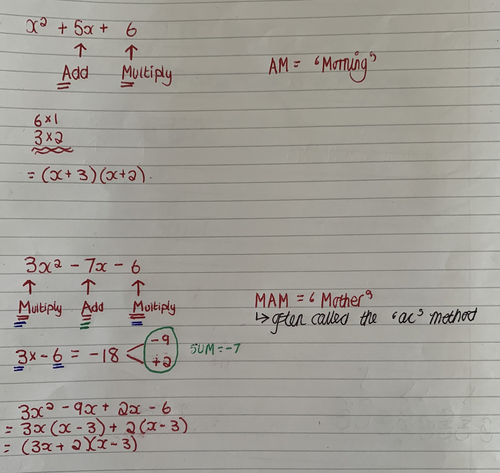 x² + 5x + 6
↑ ↑
Add Multiply
AM = "Morning"
6 x 1
3 x 2
= (x+3)(x+2).
3x² - 7x - 6
↑ ↑ ↑
Multiply Add Multiply
MAM = "Mother"
↳ often called the "ac" method
3 x - 6 = -18 < -9
+2
SUM = -7
3x² - 9x + 2x - 6
= 3x(x-3) + 2(x-3)
= (3x+2)(x-3)